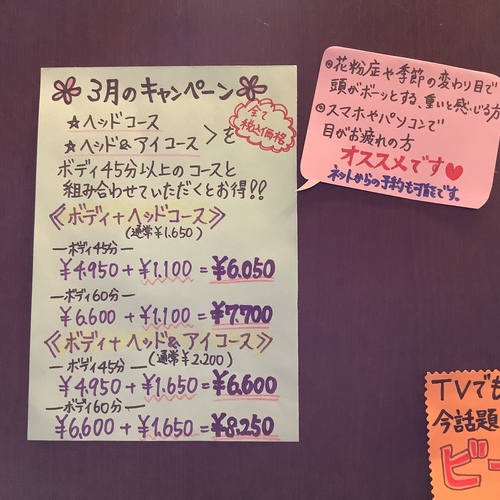 3月のキャンペーン
全て
税込価格
★ヘッドコース
★ヘッド&アイコース > を
ボディ45分以上のコースと
組み合わせていただくとお得!!
《ボディ+ヘッドコース》
(通常¥1.650)
―ボディ45分―
¥4.950+¥1.100=¥6.050
―ボディ60分―
¥6.600+¥1.100=¥7.700
《ボディ+ヘッド&アイコース》
(通常¥2.200)
―ボディ45分―
¥4.950+¥1.650=¥6.600
―ボディ60分―
¥6.600+¥1.650=¥8.250
◎花粉症や季節の変わり目で
頭がボーッとする、重いと感じる方
◎スマホやパソコンで
目がお疲れの方
オススメです♥
ネットからの予約も可能です。
TVでも
今話題
ビー